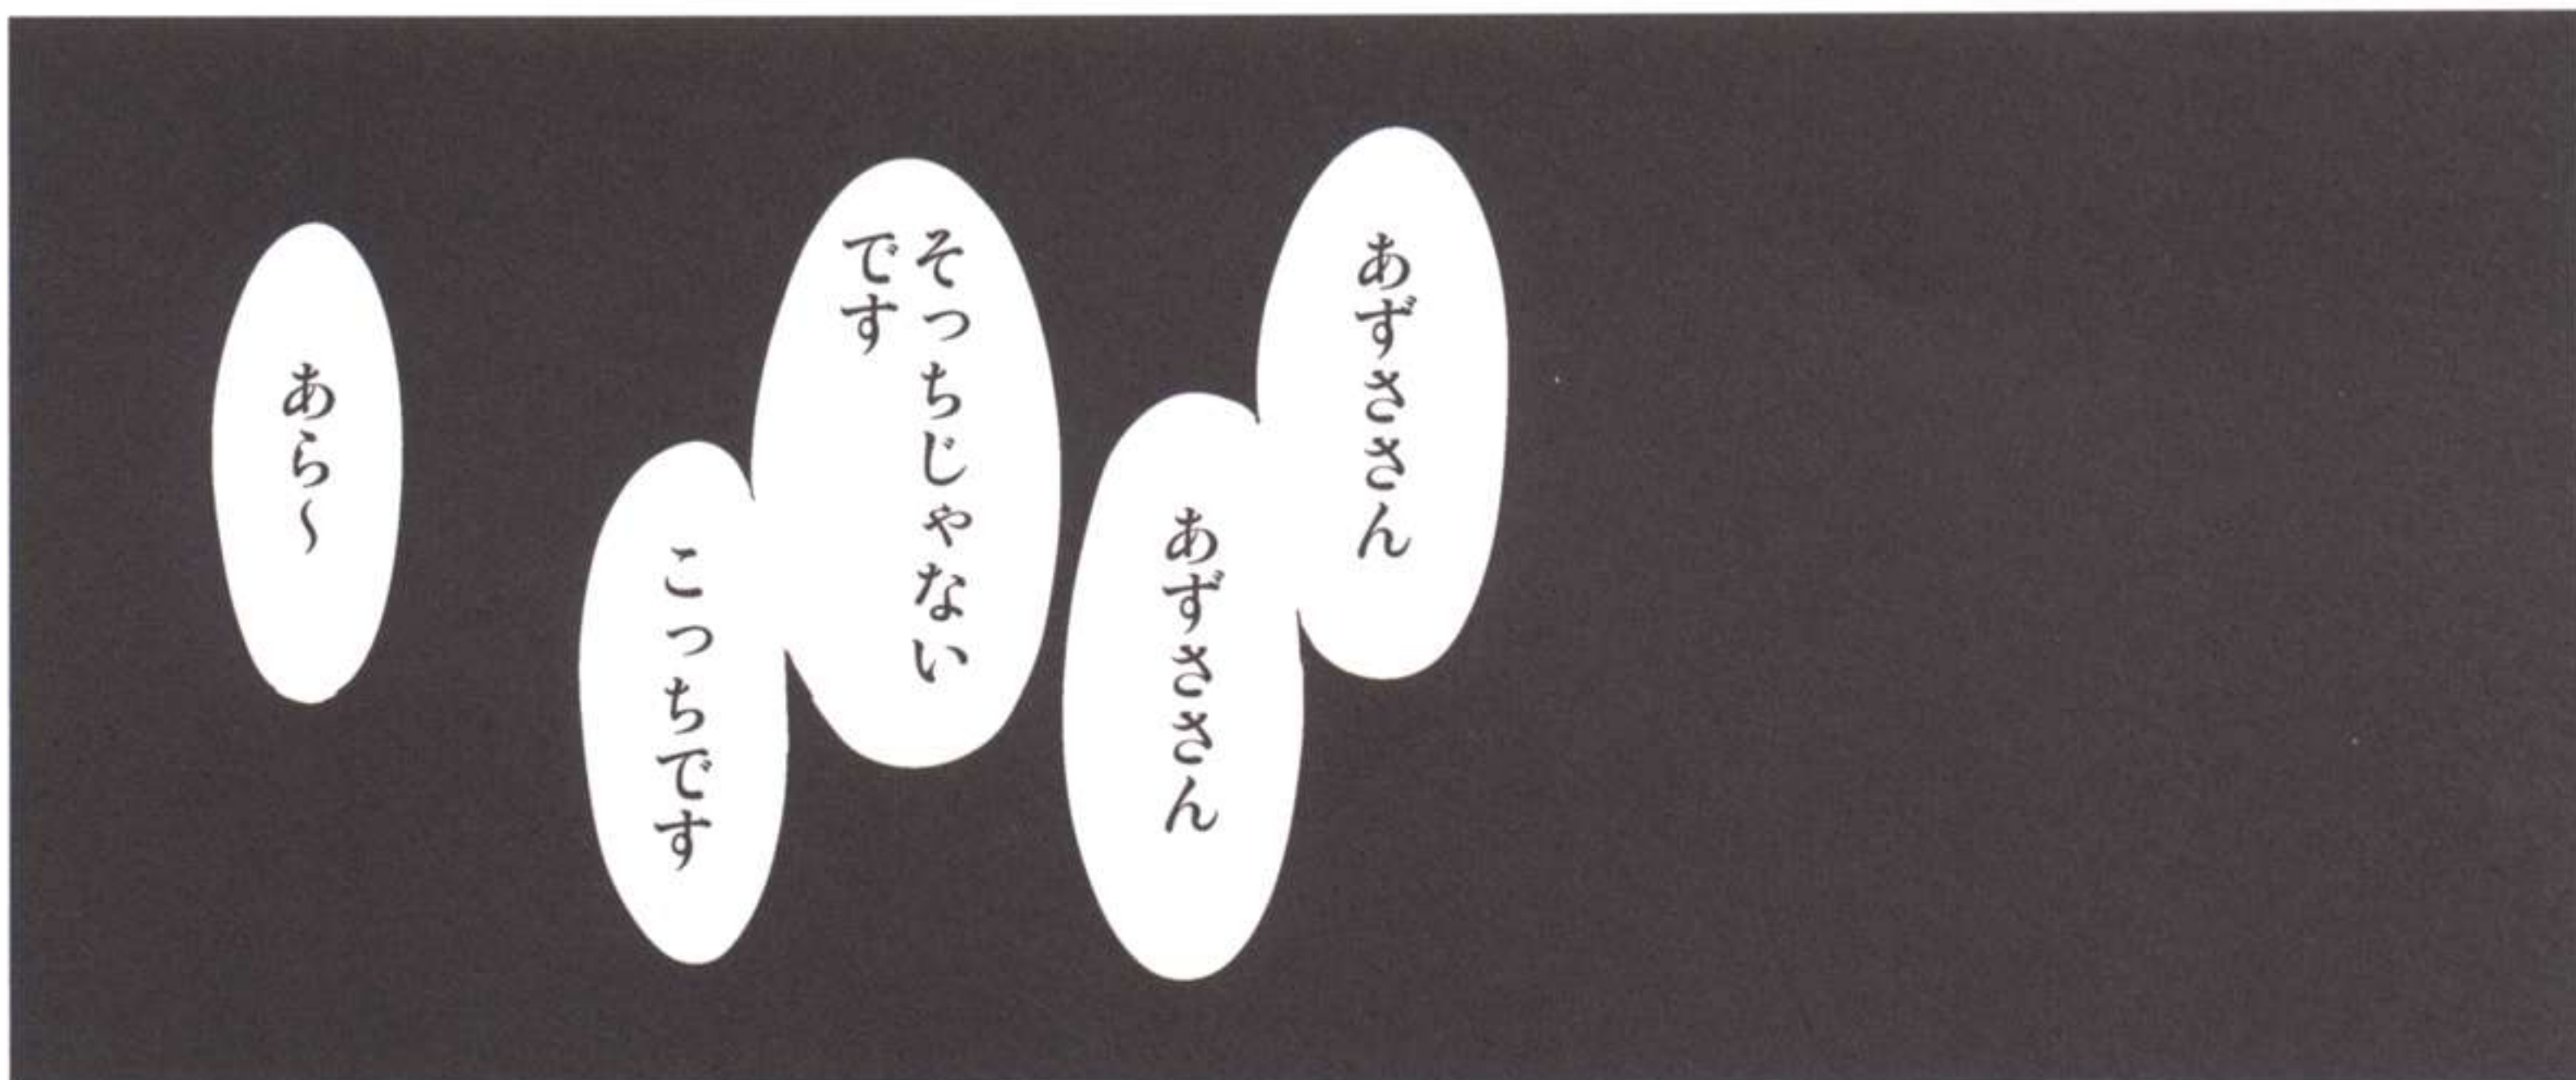 あずささん
あずささん
そっちじゃない
です
こっちです
あら～